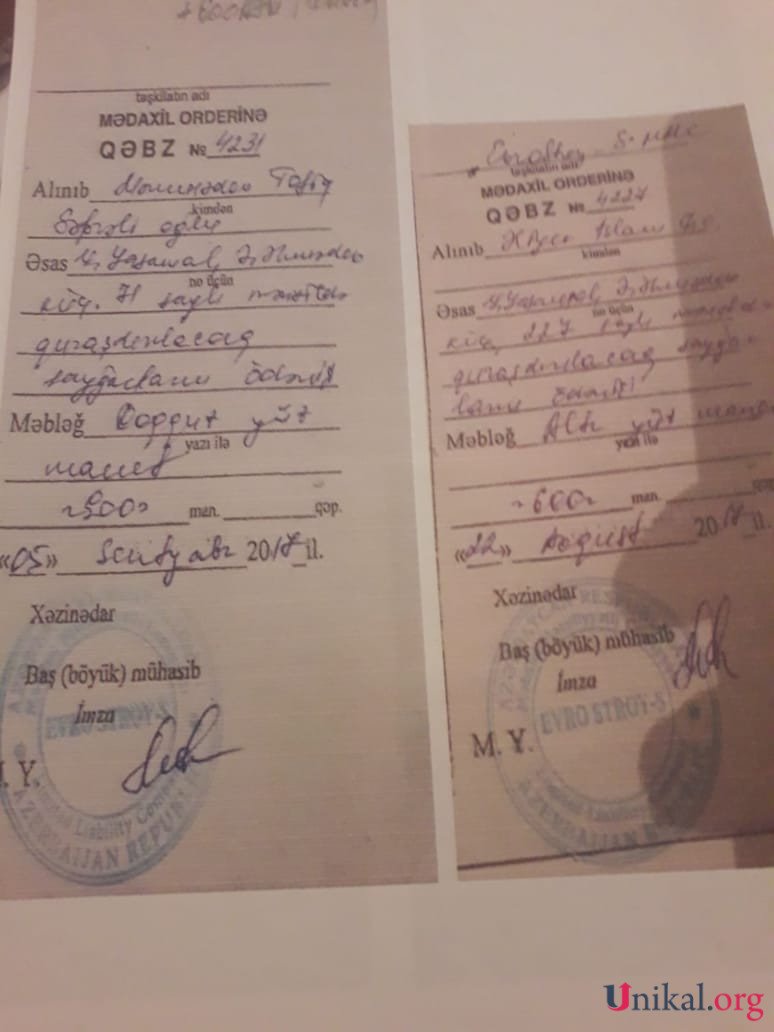 təşkilatın adı
MƏDAXİL ORDERİNƏ
QƏBZ № 4231
Alınıb Məmmədov Tofiq
kimdən
Səfərəli oğlu
Əsas Y. Yasamal, Ə.
nə üçün
küç. 71 saylı mənzildə
quraşdırılacaq
sayğacların ödənişi
Məbləğ Doqquz yüz
yazı ilə
manat
~900~ man. qəp.
«05» Sentyabr 2017 il.
Xəzinədar
Baş (böyük) mühasib
İmza
M. Y.
Limited Liability Company
AZERBAIJAN REPUBLIC
Evrostroy S- MMC
təşkilatın adı
MƏDAXİL ORDERİNƏ
QƏBZ № 4227
Alınıb
kimdən
Əsas Y. Yasamal Ə.
nə üçün
küç. 227 saylı
quraşdırılacaq sayğac-
ların ödənişi
Məbləğ Altı yüz manat
yazı ilə
~600~ man. qəp.
«22» Avqust 2017 il.
Xəzinədar
Baş (böyük) mühasib
İmza
EVRO STROY-S
M. Y.
Limited Liability Company
AZERBAIJAN REPUBLIC
Unikal.org